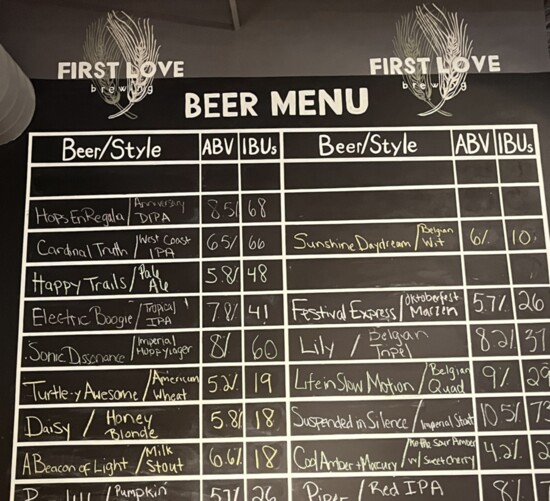 FIRST LOVE
brewing
FIRST LOVE
brewing
BEER MENU
Beer/Style ABV IBUs
Hops En Regalia / Anniversary DIPA 8.5% 68
Cardinal Truth / West Coast IPA 6.5% 66
Happy Trails / Pale Ale 5.8% 48
Electric Boogie / Tropical IPA 7.8% 41
Sonic Dissonance / Imperial Hoppy Lager 8% 60
Turtle-y Awesome / American Wheat 5.2% 19
Daisy / Honey Blonde 5.8% 18
A Beacon of Light / Milk Stout 6.6% 18
/ Pumpkin 5.7% 26
Beer/Style ABV IBUs
Sunshine Daydream / Belgian Wit 6% 10
Festival Express / Oktoberfest Marzen 5.7% 26
Lily / Belgian Tripel 8.2% 37
Life in Slow Motion / Belgian Quad 9% 29
Suspended in Silence / Imperial Stout 10.5%
Cool Amber + Mercury / Kettle Sour w/ Sweet Cherry 4.2%
Piper / Red IPA 8%